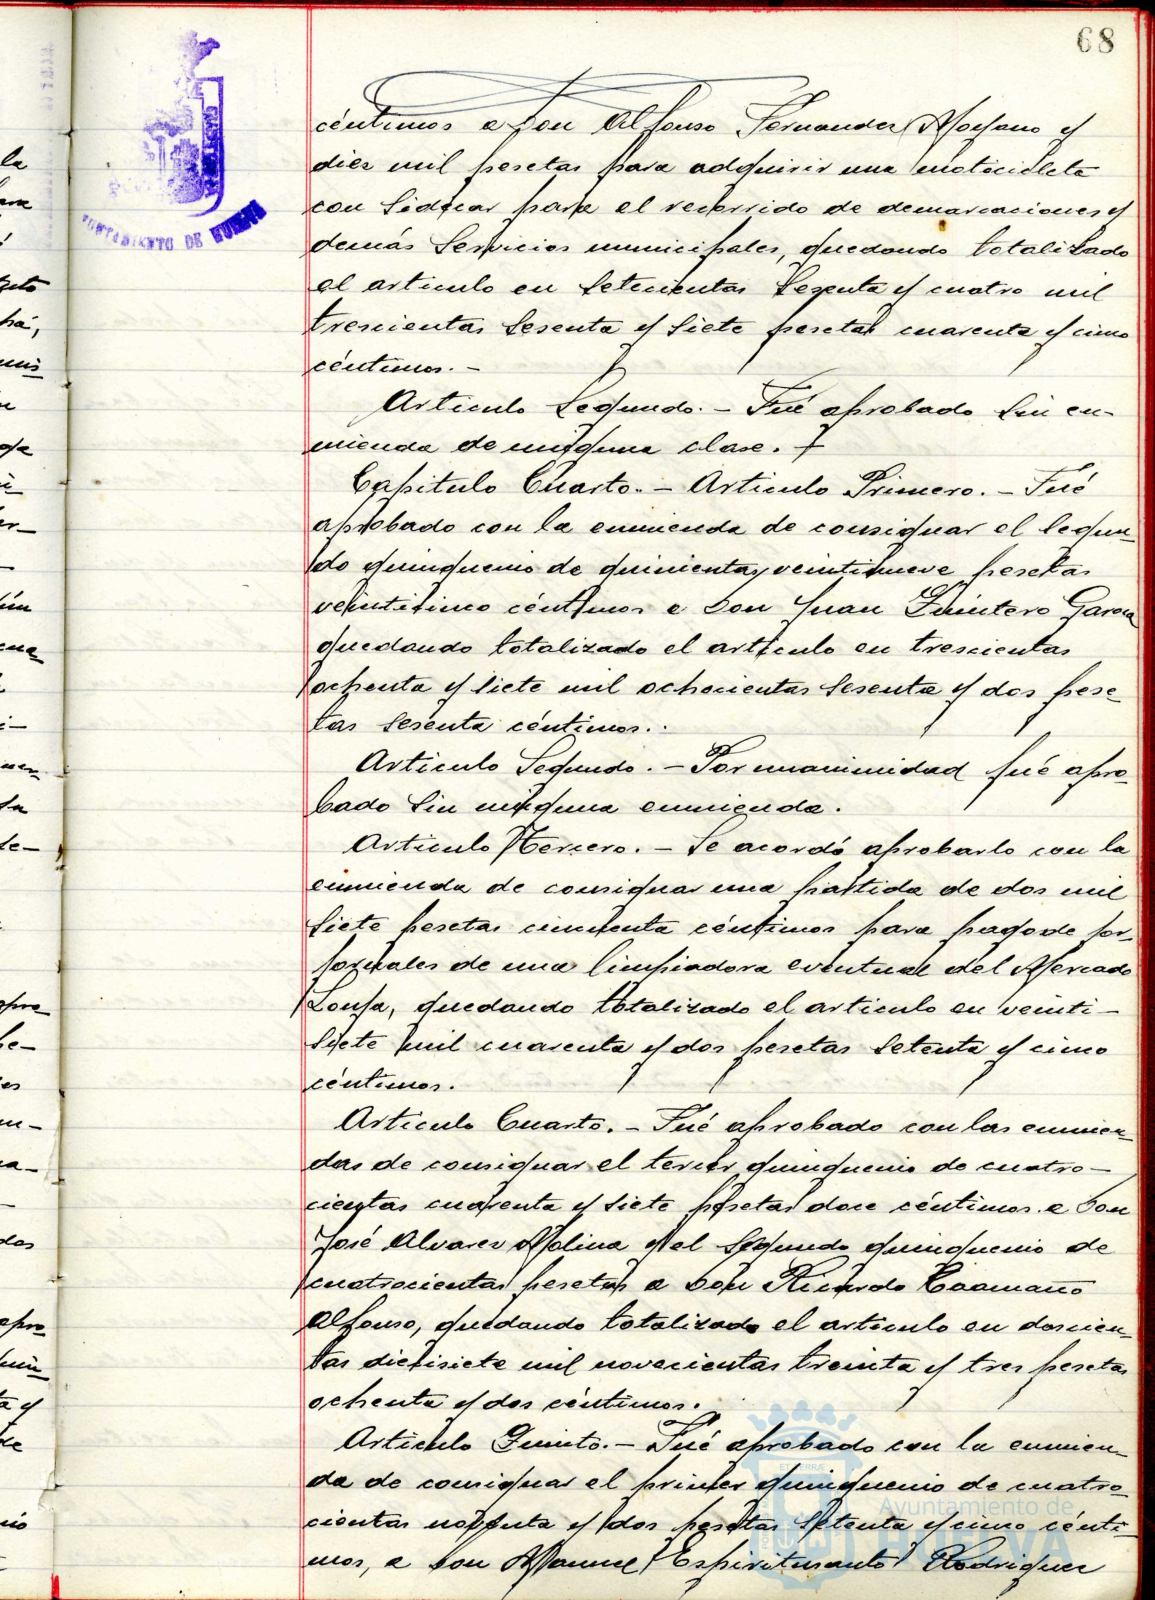 68
AYUNTAMIENTO DE HUELVA
céntimos a Don Alfonso Fernandez Moyano y
diez mil pesetas para adquirir una motocicleta
con Sidecar para el recorrido de demarcaciones y
demás Servicios municipales, quedando totalizado
el articulo en Setecientas Sesenta y cuatro mil
trescientas Sesenta y Siete pesetas cuarenta y cinco
céntimos. -
Articulo Segundo. - Fué aprobado Sin en-
mienda de ninguna clase.
Capitulo Cuarto. - Articulo Primero. - Fué
aprobado con la enmienda de consignar el Segun-
do quinquenio de quinientas veintinueve pesetas
veinticinco céntimos a Don Juan Quintero Garcia
quedando totalizado el articulo en trescientas
ochenta y Siete mil ochocientas Sesenta y dos pese-
tas Sesenta céntimos.
Articulo Segundo. - Por unanimidad fué apro-
bado Sin ninguna enmienda.
Articulo Tercero. - Se acordó aprobarlo con la
enmienda de consignar una partida de dos mil
Siete pesetas cincuenta céntimos para pago de jor-
jornales de una limpiadora eventual del Mercado
Lonja, quedando totalizado el articulo en veinti-
Siete mil cuarenta y dos pesetas Setenta y cinco
céntimos.
Articulo Cuarto. - Fué aprobado con las enmien-
das de consignar el tercer quinquenio de cuatro-
cientas cuarenta y Siete pesetas doce céntimos a Don
José Alvarez Molina y el Segundo quinquenio de
cuatrocientas pesetas a Don Ricardo Caamaño
Alfonso, quedando totalizado el articulo en doscien-
tas diecisiete mil novecientas treinta y tres pesetas
ochenta y dos céntimos.
Articulo Quinto. - Fué aprobado con la enmien-
da de consignar el primer quinquenio de cuatro-
cientas noventa y dos pesetas Setenta y cinco cénti-
mos, a Don Manuel Espiritusanto Rodriguez
Ayuntamiento de
HUELVA